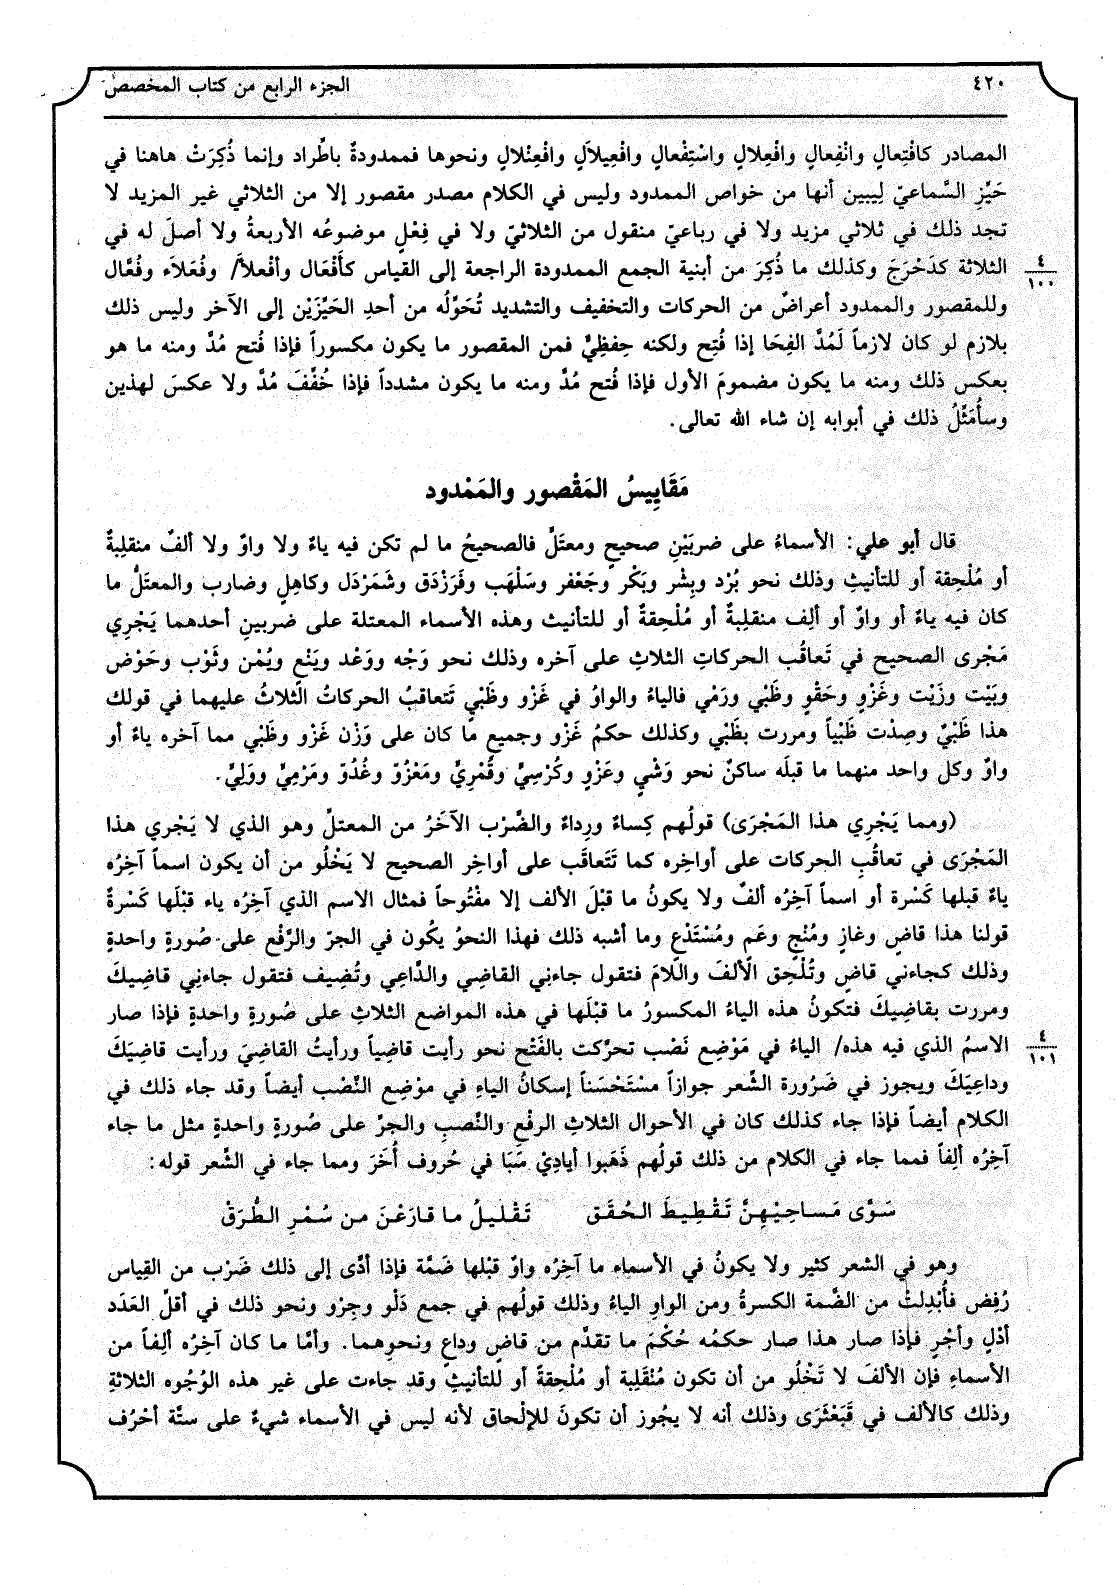 ٤٢٠
الجزء الرابع من كتاب المخصص
المصادر كافْتِعالٍ وانْفِعالٍ وافْعِلالٍ واسْتِفْعالٍ وافْعِيلاَلٍ وافْعِنْلالٍ ونحوها فممدودةٌ باطِّراد وإنما ذُكِرَتْ هاهنا في
حَيِّزِ السَّماعيّ لِيبين أنها من خواص الممدود وليس في الكلام مصدر مقصور إلا من الثلاثي غير المزيد لا
تجد ذلك في ثلاثي مزيد ولا في رباعيّ منقول من الثلاثيّ ولا في فِعْلٍ موضوعُه الأربعةُ ولا أصلَ له في
الثلاثة كدَحْرَجَ وكذلك ما ذُكِرَ من أبنية الجمع الممدودة الراجعة إلى القياس كأَفْعَال وأفْعلاَ/ وفُعَلاَء وفُعَّال
٤
١٠٠
وللمقصور والممدود أعراضٌ من الحركات والتخفيف والتشديد تُحَوِّلُه من أحدِ الحَيِّزَيْن إلى الآخر وليس ذلك
بلازم لو كان لازماً لَمُدَّ الفِحَا إذا فُتِح ولكنه حِفظِيٌّ فمن المقصور ما يكون مكسوراً فإذا فُتح مُدَّ ومنه ما هو
بعكس ذلك ومنه ما يكون مضمومَ الأول فإذا فُتح مُدَّ ومنه ما يكون مشدداً فإذا خُفِّفَ مُدَّ ولا عكسَ لهذين
وسأُمَثِّلُ ذلك في أبوابه إن شاء الله تعالى.
مَقَايِيسُ المَقْصور والمَمْدود
قال أبو علي: الأسماءُ على ضربَيْنِ صحيحٍ ومعتَلٍّ فالصحيحُ ما لم تكن فيه ياءٌ ولا واوٌ ولا ألفٌ منقلِبةٌ
أو مُلْحِقة أو للتأنيثِ وذلك نحو بُرْد وبِشْر وبَكْر وجَعْفر وسَلْهَب وفَرَزْدَق وشَمَرْدَل وكاهِلٍ وضارب والمعتَلُّ ما
كان فيه ياءٌ أو واوٌ أو ألِف منقلِبةٌ أو مُلْحِقةٌ أو للتأنيث وهذه الأسماء المعتلة على ضربينِ أحدهما يَجْرِي
مَجْرى الصحيح في تَعاقُب الحركاتِ الثلاثِ على آخره وذلك نحو وَجْه ووَعْد ويَنْعٍ ويُمْن وثَوْب وحَوْض
وبَيْت وزَيْت وغَزْوٍ وحَقْوٍ وظَبْي ورَمْي فالياءُ والواوُ في غَزْو وظَبْيٍ تَتعاقبُ الحركاتُ الثَّلاثُ عليهما في قولك
هذا ظَبْيٌ وصِدْت ظَبْياً ومررت بظَبْي وكذلك حكمُ غَزْو وجميعِ ما كان على وَزْن غَزْو وظَبْي مما آخره ياءٌ أو
واوٌ وكل واحد منهما ما قبلَه ساكنٌ نحو وَشْيٍ وغَزْوٍ وكُرْسِيٍّ وقُمْرِيٍّ ومَغْزُوّ وغُدُوّ ومَرْمِيٍّ ووَلِيٍّ.
(ومما يَجْرِي هذا المَجْرَى) قولُهم كِساءٌ ورِداءٌ والضَّرْب الآخَرُ من المعتلِّ وهو الذي لا يَجْري هذا
المَجْرَى في تعاقُبِ الحركات على أواخِره كما تَتَعاقَب على أواخِر الصحيح لا يَخْلُو من أن يكون اسماً آخِرُه
ياءٌ قبلها كَسْرة أو اسماً آخِرُه ألفٌ ولا يكونُ ما قبْلَ الألف إلا مفْتُوحاً فمثال الاسم الذي آخِرُه ياء قبْلَها كَسْرةٌ
قولنا هذا قاضٍ وغازٍ ومُنْجٍ وعَمٍ ومُسْتَدْعٍ وما أشبه ذلك فهذا النحوُ يكون في الجرّ والرَّفْع على صُورةٍ واحدةٍ
وذلك كجاءني قاضٍ وتُلْحِق الألفَ واللامَ فتقول جاءنِي القاضِي والدَّاعِي وتُضِيف فتقول جاءنِي قاضِيكَ
ومررت بقاضِيكَ فتكونُ هذه الياءُ المكسورُ ما قبْلَها في هذه المواضع الثلاثِ على صُورةٍ واحدةٍ فإذا صار
الاسمُ الذي فيه هذه/ الياءُ في مَوْضِع نَصْب تحرَّكت بالفَتْح نحو رأيت قاضِياً ورأيتُ القاضِيَ ورأيت قاضِيَكَ
٤
١٠١
وداعِيَكَ ويجوز في ضَرُورة الشِّعر جوازاً مسْتَحْسَناً إسكانُ الياءِ في موْضِع النَّصْب أيضاً وقد جاء ذلك في
الكلام أيضاً فإذا جاء كذلك كان في الأحوال الثلاثِ الرفْعِ والنَّصبِ والجرِّ على صُورةٍ واحدةٍ مثل ما جاء
آخِرُه ألِفاً فمما جاء في الكلام من ذلك قولُهم ذَهَبوا أيادِيْ سَبَا في حُروف أُخَرَ ومما جاء في الشِّعر قوله:
سَوَّى مَساحِيْهِنَّ تَقْطِيطَ الحُقَقِ تَقْلِيلُ ما قارَعْنَ من سُمْرِ الطُّرَقْ
وهو في الشعر كثير ولا يكونُ في الأسماء ما آخِرُه واوٌ قبْلها ضَمَّة فإذا أدَّى إلى ذلك ضَرْب من القِياس
رُفِض فأُبْدِلتْ من الضَّمة الكسرةُ ومن الواوِ الياءُ وذلك قولُهم في جمع دَلْو وجِرْو ونحو ذلك في أقلِّ العَدَد
أدْلٍ وأجْرٍ فإذا صار هذا صار حكمُه حُكْمَ ما تقدَّم من قاضٍ وداعٍ ونحوِهما. وأمَّا ما كان آخِرُه ألِفاً من
الأسماءِ فإن الألفَ لا تَخْلُو من أن تكون مُنْقَلِبة أو مُلْحِقةً أو للتأنيثِ وقد جاءت على غير هذه الوُجُوه الثلاثةِ
وذلك كالألف في قَبَعْثَرَى وذلك أنه لا يجُوز أن تكونَ للإلْحاق لأنه ليس في الأسماء شيءٌ على ستَّة أحْرُف